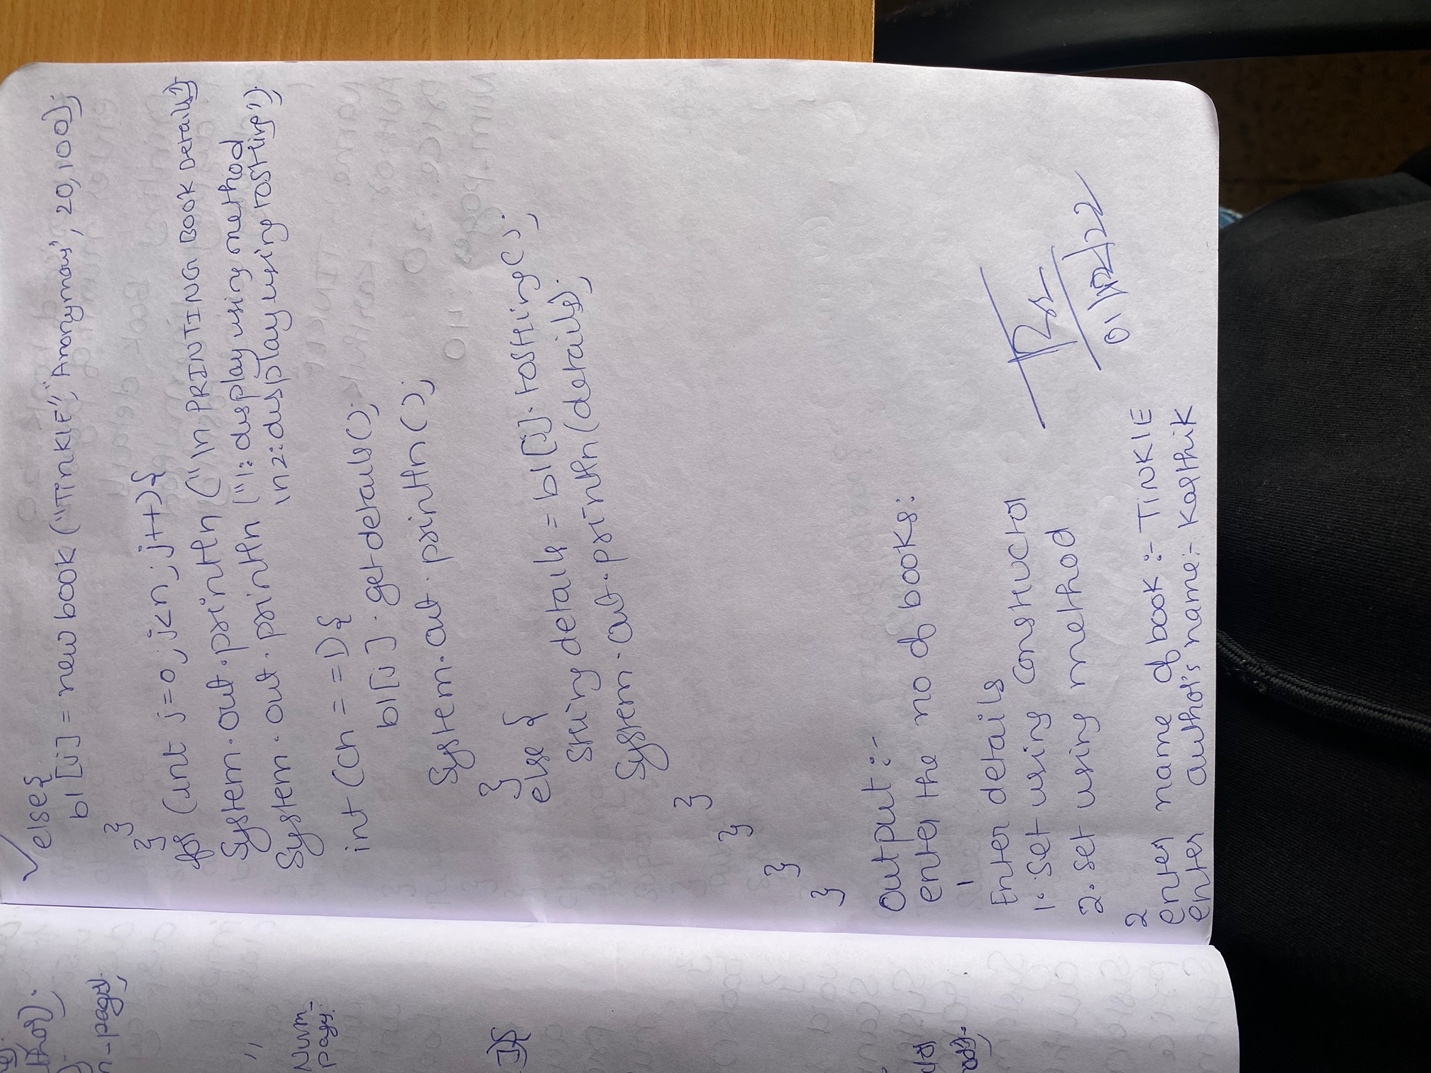 else{
b1[j] = new book ("TINKIE", "Anonymous", 20, 100);
}
}
for (int j=0; j<n; j++){
System.out.println ("\n PRINTING BOOK Details")
System.out.println ("1: display using method
\n 2: display using tostring");
int (ch == 1) {
b1[j].getdetails();
System.out.println();
}
else {
string details = b1[j].tostring();
System.out.println(details);
}
}
}
}
output :-
enter the no of books:
1
Enter details
1. set using constructor
2. set using method
2
enter name of book :- TINKIE
enter author's name:- Karthik
thor).
n-pages);
"
Num-
pages: